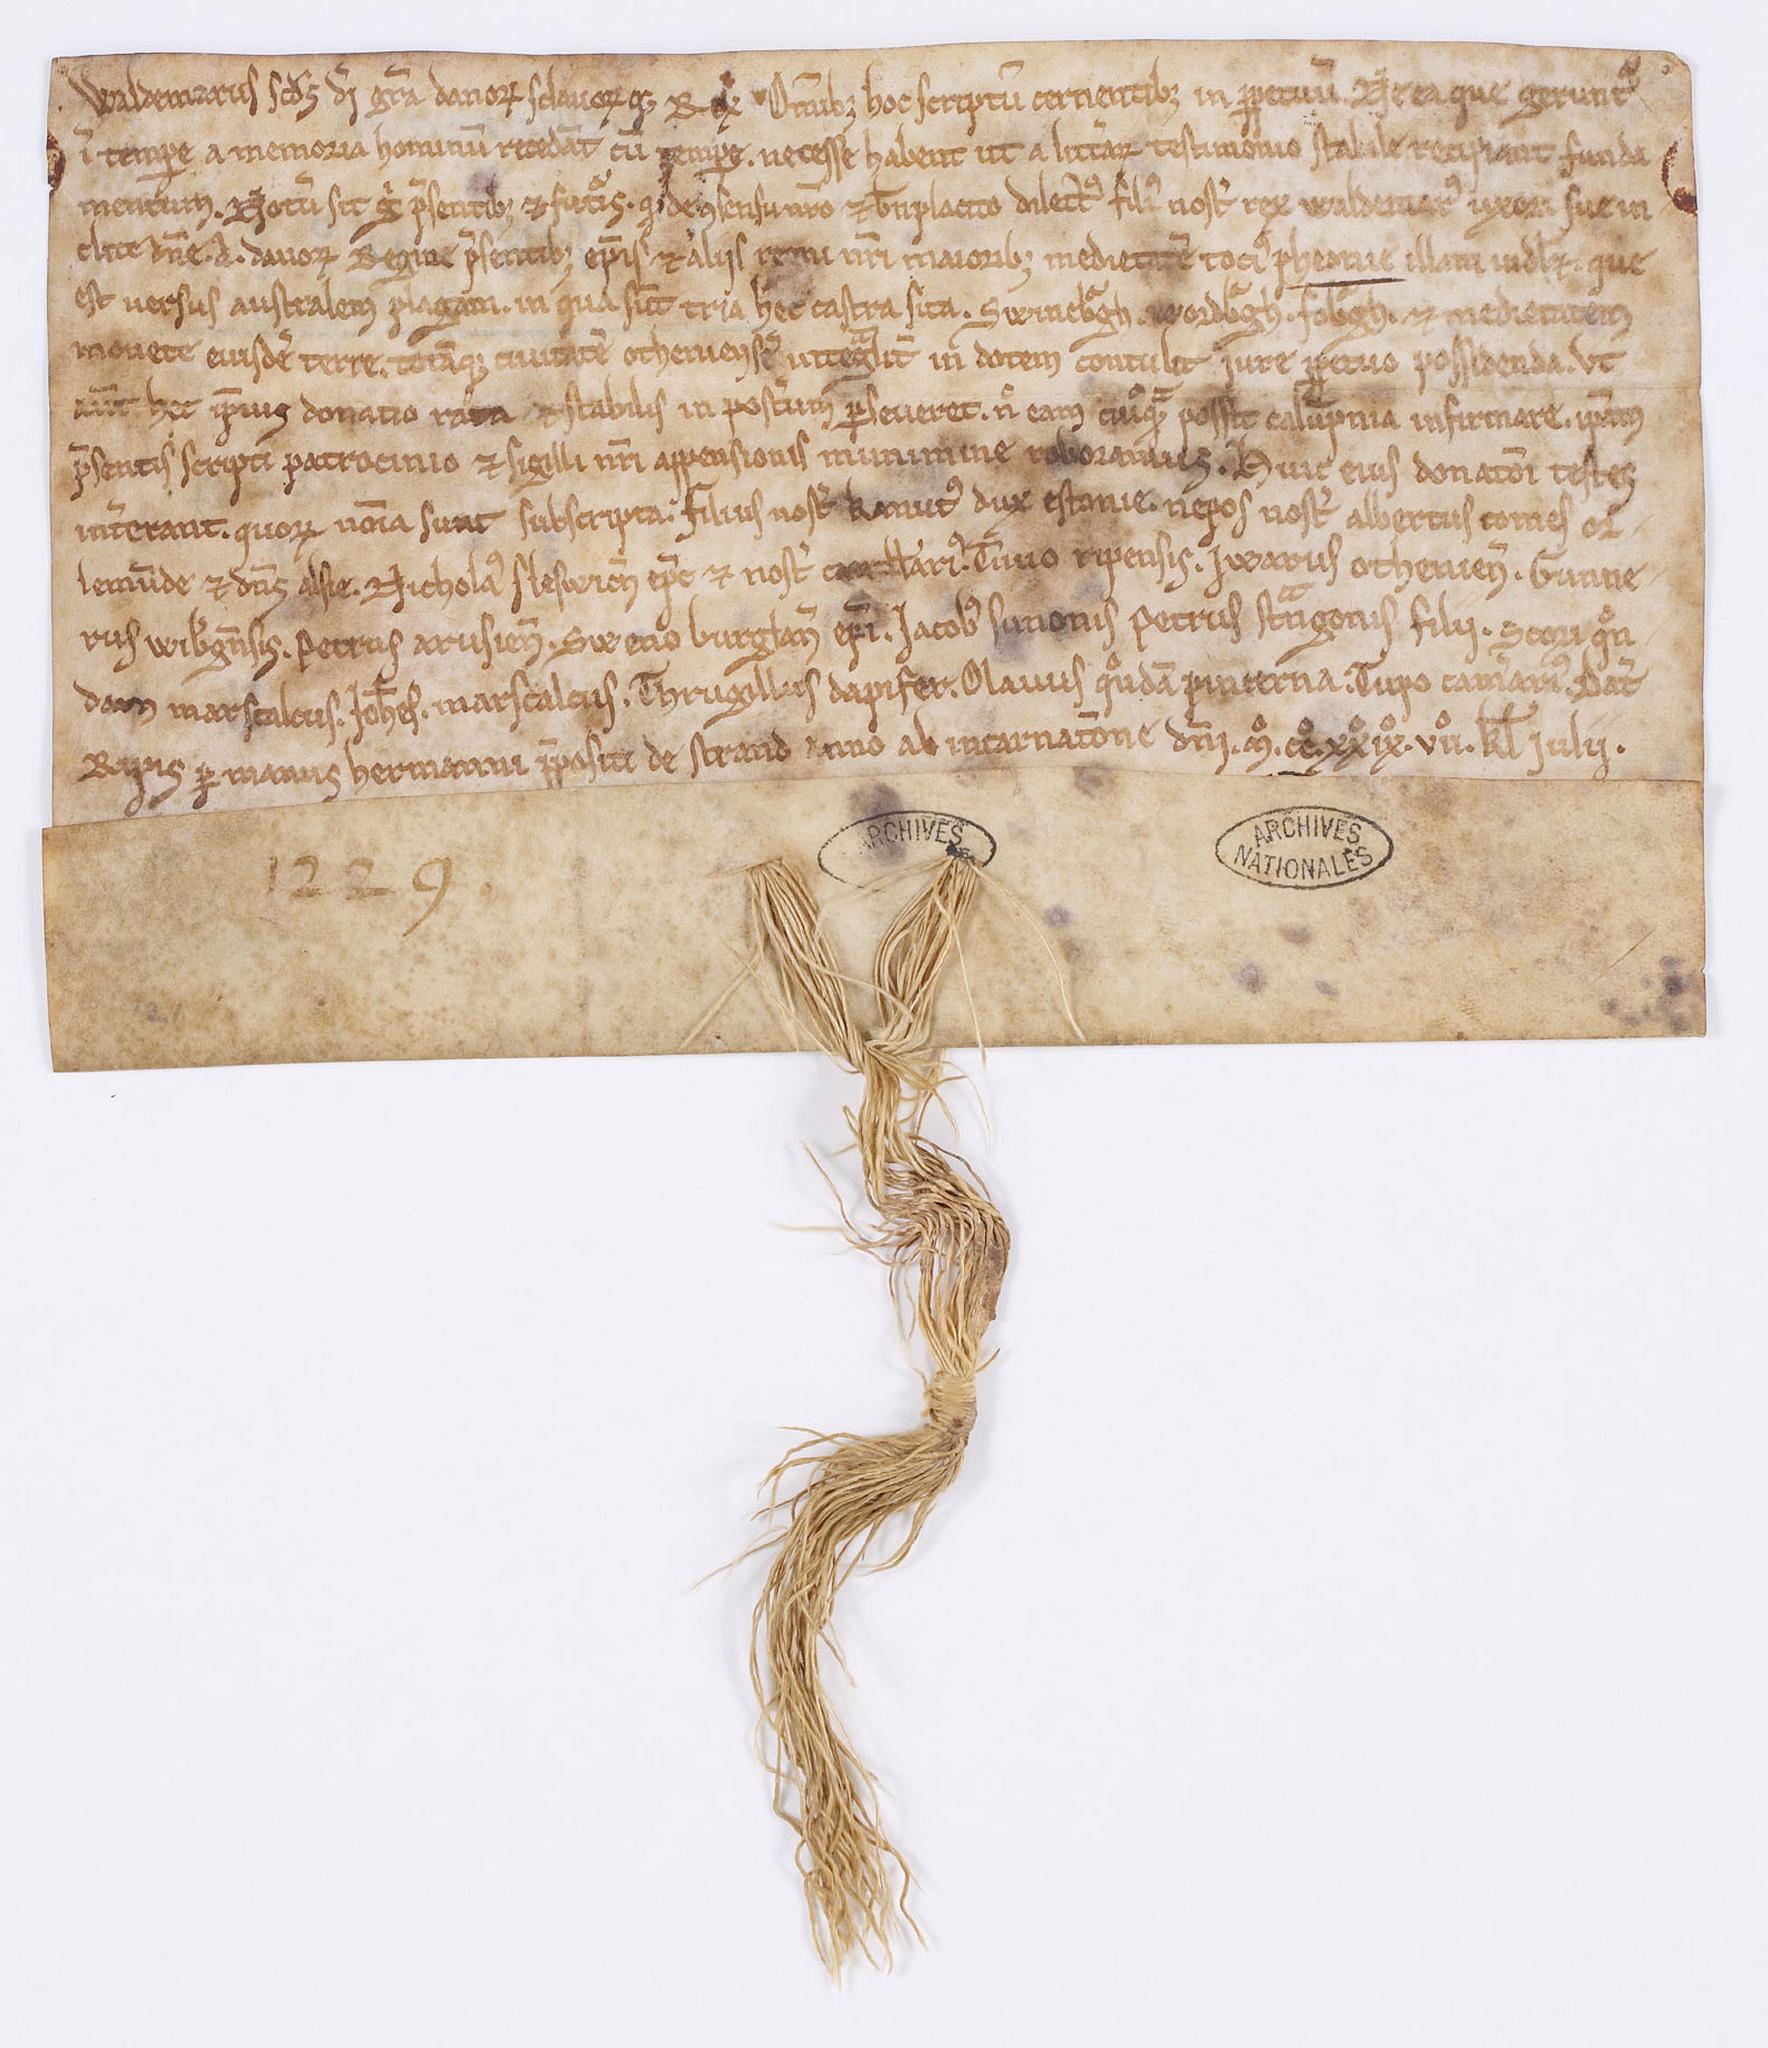 Waldemarus scđs dī gr̄a danoꝝ sclauoꝝ qꝫ Rex Om̄ibꝫ hoc scriptū cernentibꝫ in ꝑpetuū. Ne ea que gerunt᷑
ī temꝑe a memoria hominū recedāt cū temꝑe. necesse habent ut a litt̄aꝝ testimonio stabile recipiant funda
mentum. Notū sit g̊ p̄sentibꝫ ⁊ futu͛is. q̢ de ꝯsensu nr̄o ⁊ bn̄placito dilectꝰ filiꝰ nost͛ rex waldemarꝰ uxori sue in
clite dn̄e. A. danoꝝ Regine p̄sentibꝫ ep̄is ⁊ alijs regni nr̄i maioribꝫ medietatē tociꝰ pheonie illam uidlꝫ. que
est uersus australem plagam. in qua sūt tria hec castra sita. Swinebᷓgh. wordbᷓgh. fobᷓgh. ⁊ medietatem
monete eiusdē terre. totāqꝫ ciuitatē otheniensē integᷓlit̄ in dotem contulit iure ꝑpetuo possidenda. Vt
aūt hec ip̄ius donatio rata ⁊ stabilis in post̄um ꝑseueret. n̊ eam cuiꝰqᷓ possit calūpnia infirmare. ip̄am
p̄sentis scripti patrocinio ⁊ sigilli nr̄i appensionis munimine roboramus. Huic eius donatōi testes
int̄erant. quoꝝ noīa sunt subscripta. filius nost͛ kanutꝰ dux estonie. nepos nost͛ albertus comes or
lemūde ⁊ dn̄s alsie. Nicholaꝰ sleswicn̄ ep̄c ⁊ nost͛ cancellariꝰ. Tuuo ripensis. Iwarus othenien̄. Gunne
rus wibgn̄sis. Petrus arusien̄. Sweno burglan̄ ep̄i. Iacobꝰ sunonis Petrus stᷓngonis filij. Scori qͦn
dam marscalcus. Ioh̄es. marscalcus. Thrugillus dapifer. Olauus qͦndā pincerna. Tupo cam̄ariꝰ. Dat̄
Ripis ꝑ manus hermanni p̄positi de strand Anno ab incarnatōne dn̄i. mͦ. ccͦ. xxͦ ixͦ. viiͦ. kl̄ iulij.
1229.
ARCHIVES
ARCHIVES
NATIONALES